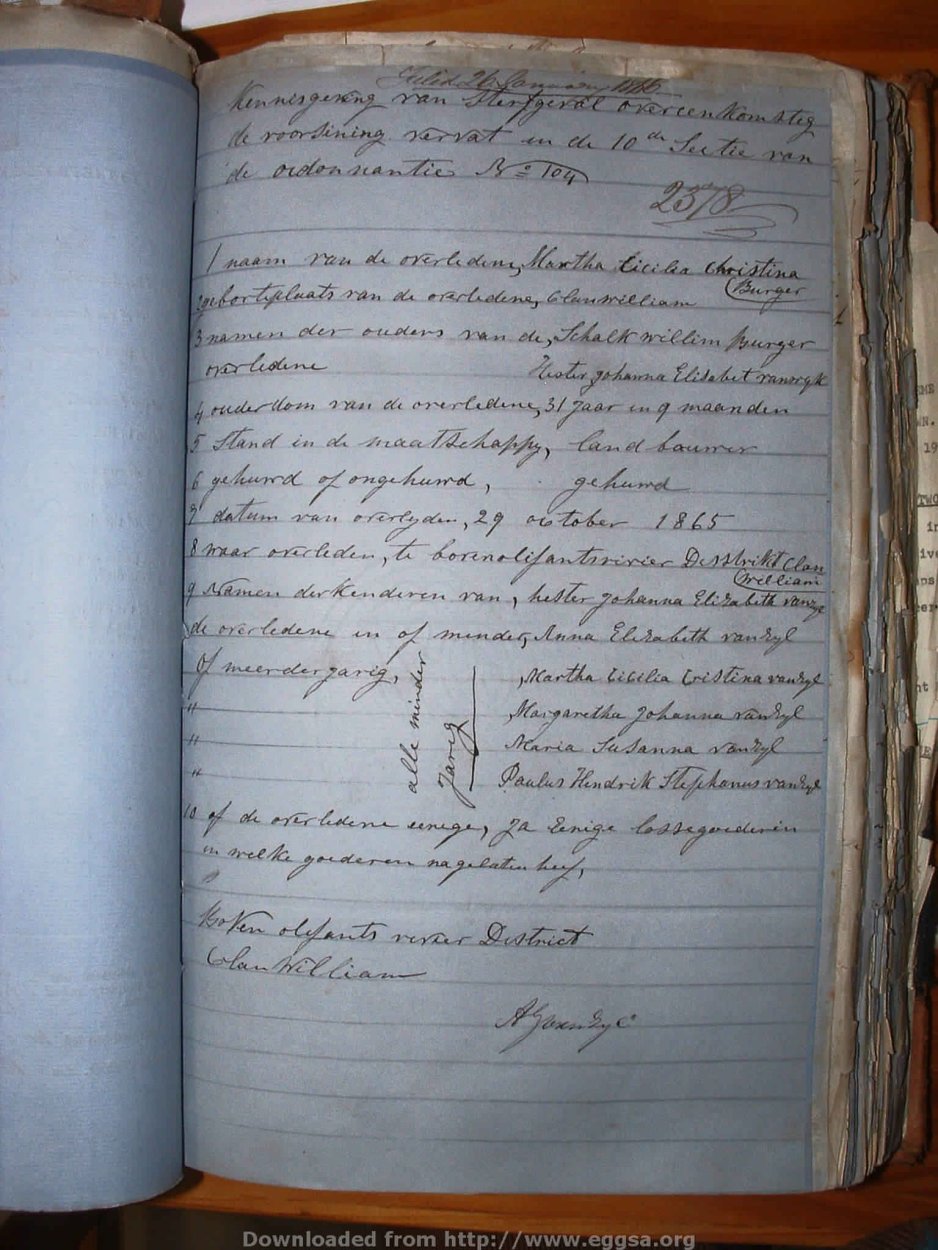 Filed 26 January 1866
Kennisgeving van Sterfgeval overeenkomsteg
de voorsining vervat in de 10 de Sectie van
de ordonnantie No 104
2378
1 naam van de overledene, Martha Cicilia Christina
Burger
2 geborteplaats van de overledene, Clanwilliam
3 namen der ouders van de, Schalk willim Burger
overledene Hester Johanna Elisabet
4 ouderdom van de overledene, 31 Jaar in 9 maanden
5 Stand in de maatschappy, landbouwer
6 gehuwd of ongehuwd, gehuwd
7 datum van overlyden, 29 october 1865
8 waar overleden, te bovenolifantsrivier Desstrikt Clan
william
9 Namen der Kenderen van, hester Johanna Elizabeth vanzyl
de overledene en of minder, Anna Elizabeth vanzyl
Of meerderjarig, Martha Cicilia Cristina vanzyl
" Margaretha Johanna vanzyl
" Maria Susanna vanzyl
" Paulus Hendrik Stephanus vanzyl
alle minder
Jarig
10 of de overledene eenege, Ja Eenige lossegoederin
in welke goederen nagelaten heef,
"
Boven olifants revier District
Clan William
vanzyl
1
19
TWO
in
Downloaded from http://www.eggsa.org